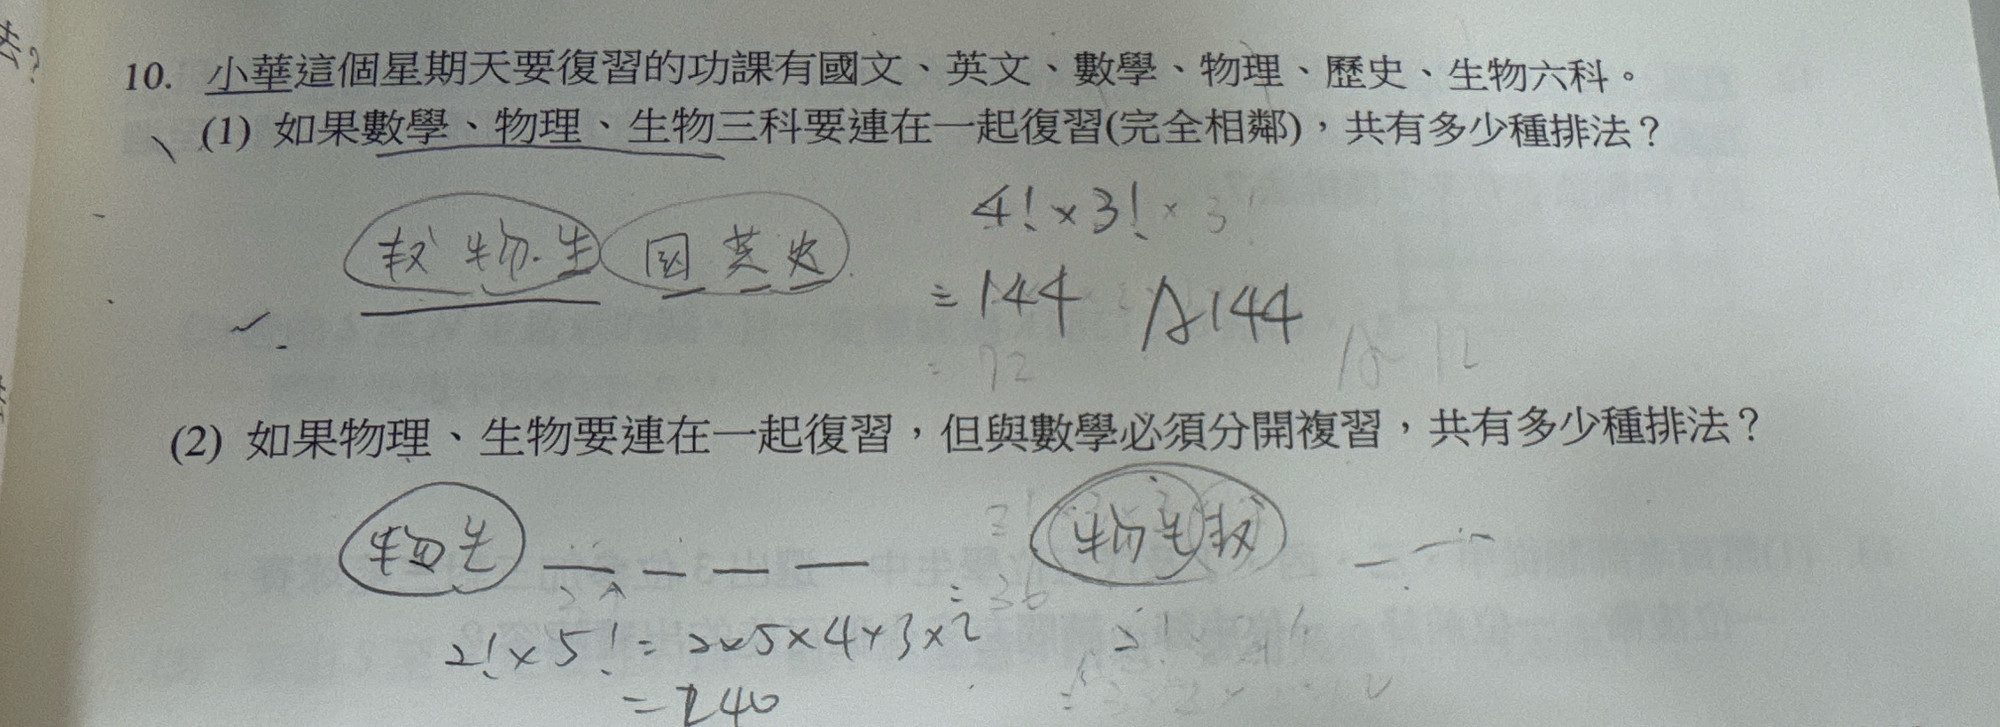 10. 小華這個星期天要復習的功課有國文、英文、數學、物理、歷史、生物六科。
(1) 如果數學、物理、生物三科要連在一起復習(完全相鄰)，共有多少種排法？
4!×3!
数 物 生 国 英 史
=144 A 144
=72 A 12
(2) 如果物理、生物要連在一起復習，但與數學必須分開複習，共有多少種排法？
物生
物生数
=36
2!×5!=2×5×4×3×2
=240